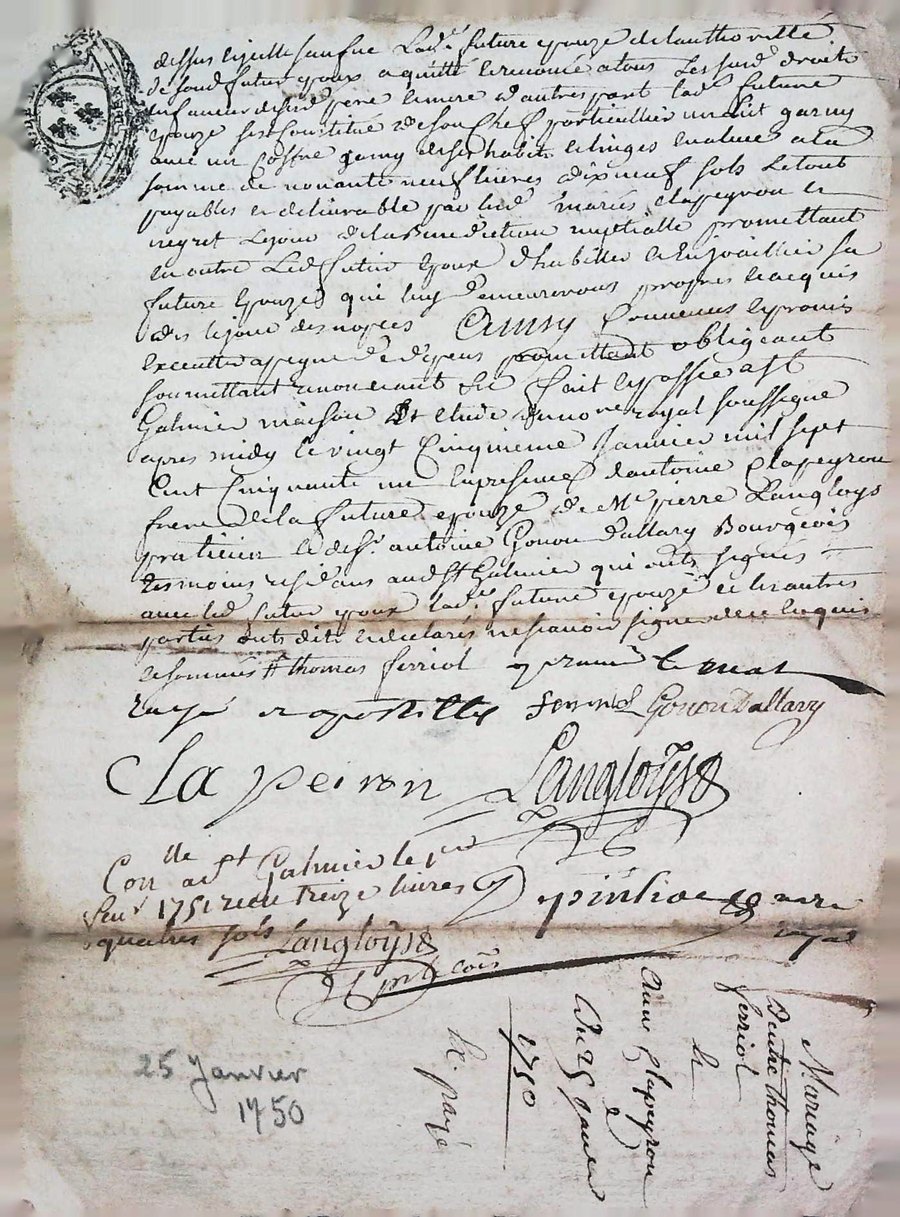 dessus ladte future epouze de lauthoritté
de sond futur epoux a quitté et renoncé a tous les susd droits
pere et mere d'autre part lad future
epouze sest constitué de son chef particullier un lit garny
avec un coffre garny de ses habits et linges evalues a la
somme de nonante neuf livres dixneuf sols le tout
payables et delivrable par lesd mariés clapeyron et
neyret le jour de la benediction nuptialle promettant
en outre led futur epoux d'habiller et enjoailler sa
future epouze qui luy demeureront propres et acquis
des le jour des nopces Ainsy convenus et promis
executter a peyne de depens promettant obligeant
soumettant renonceant &c fait et passé a st
Galmier maison et etude du nore royal soussigné
apres midy le vingt cinquieme janvier mil sept
cent cinquante un en presence d'antoine Clapeyron
frere de la future epouze de Me pierre Langloys
praticien et de sr antoine Gonon d'allary Bourgeois
tesmoins residans aud st Galmier qui onts signés
avec led futur epoux lad future epouze et les autres
parties onts dits et declarés ne scavoir signer de ce enquis
et sommés thomas ferriol le mot
rayé et apostille ferriol Gonon Dallary
Clapeiron Langloys
Conlle a st Galmier le 1er
fevr 1751 receu treize livres
quattre sols Langloys
royal
Mariage
D'entre thomas
ferriol
Et
Anne Clapeyron
Du 25 janvier
1750
Et payé
25 Janvier
1750